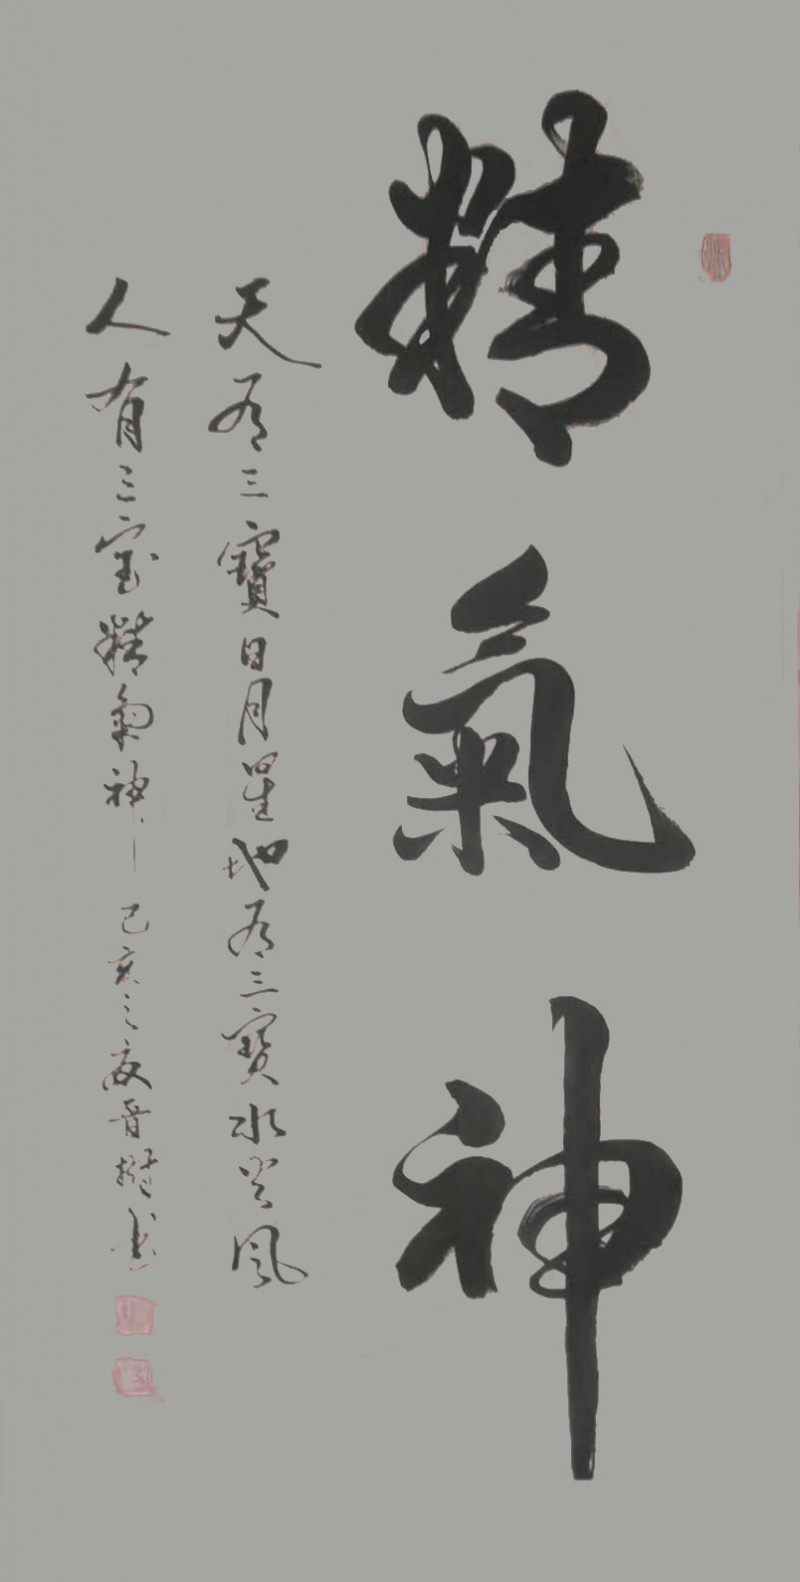 精氣神
天有三寶日月星地有三寶水火風
人有三宝精氣神己亥之夏晋樹书